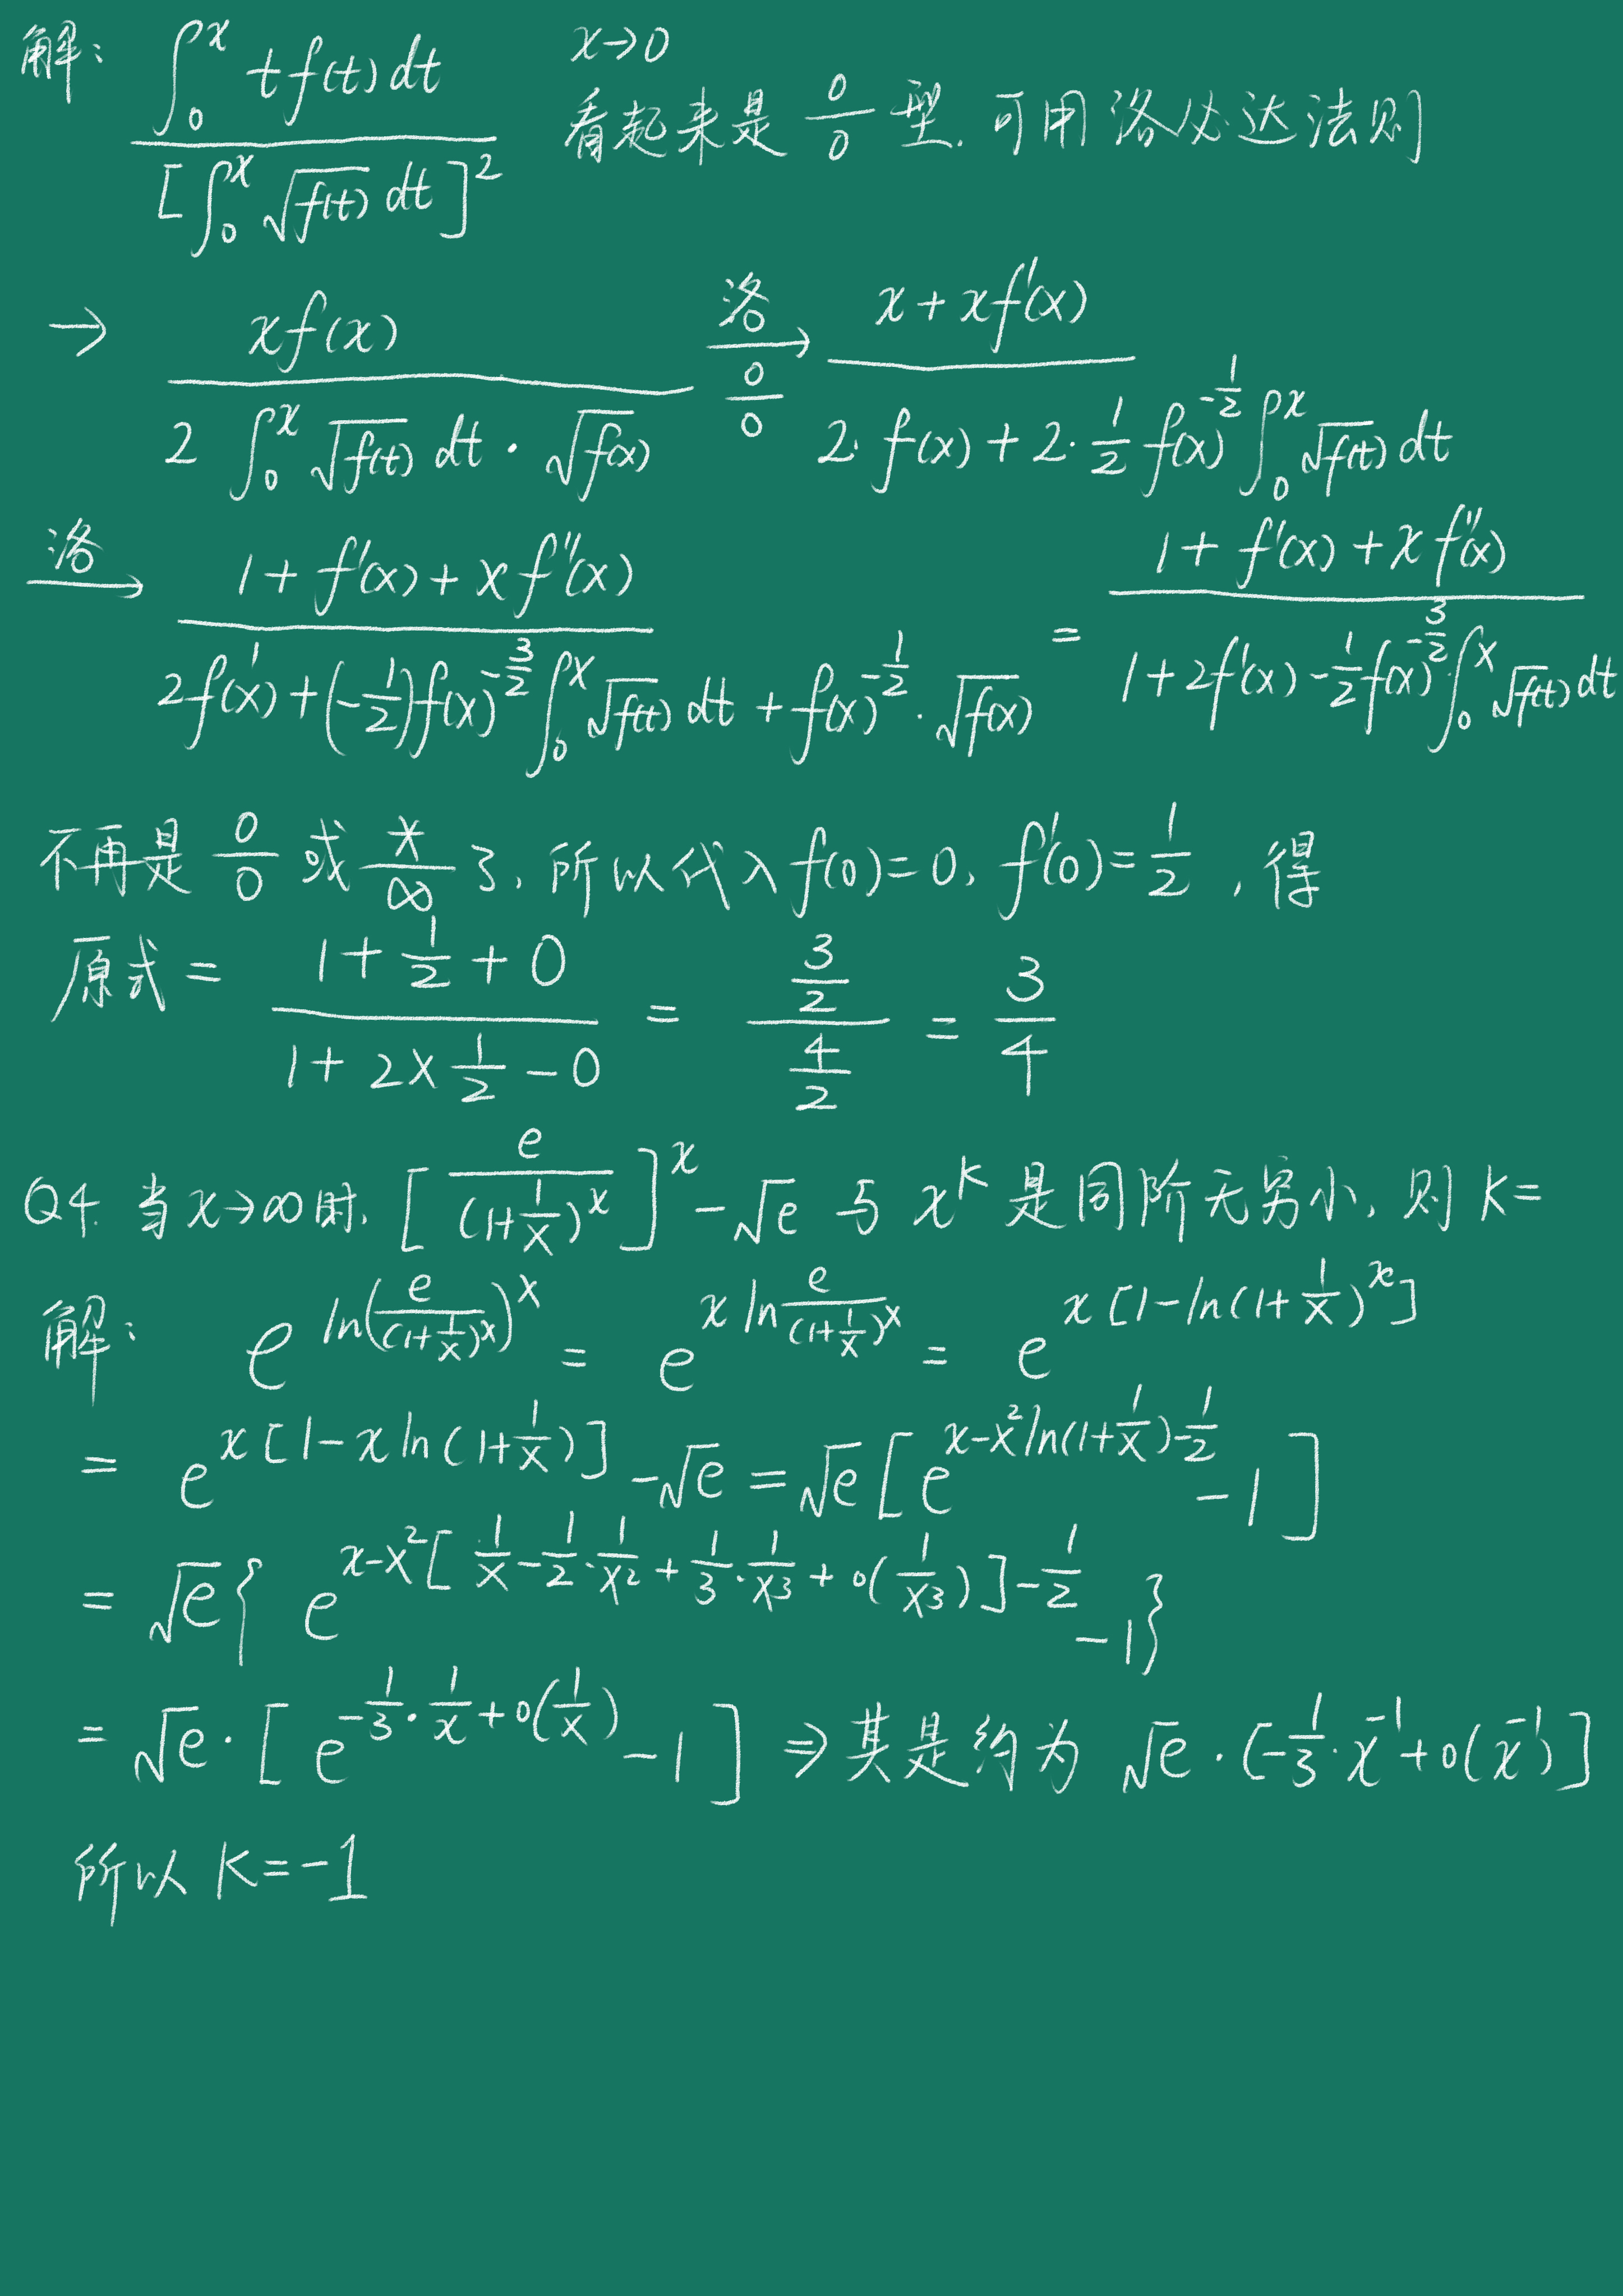 解: \frac{\int_0^x t f(t) dt}{[\int_0^x \sqrt{f(t)} dt]^2} x→0
看起来是 \frac{0}{0} 型. 可用洛必达法则
→ \frac{x f(x)}{2 \int_0^x \sqrt{f(t)} dt · \sqrt{f(x)}} \xrightarrow[\frac{0}{0}]{洛} \frac{x + x f'(x)}{2· f(x) + 2· \frac{1}{2} f(x)^{-\frac{1}{2}} \int_0^x \sqrt{f(t)} dt}
\xrightarrow{洛} \frac{1 + f'(x) + x f''(x)}{2f'(x) + (-\frac{1}{2}) f(x)^{-\frac{3}{2}} \int_0^x \sqrt{f(t)} dt + f(x)^{-\frac{1}{2}} · \sqrt{f(x)}} = \frac{1 + f'(x) + x f''(x)}{1 + 2f'(x) - \frac{1}{2} f(x)^{-\frac{3}{2}} \int_0^x \sqrt{f(t)} dt}
不再是 \frac{0}{0} 或 \frac{*}{∞} 了, 所以代入 f(0)=0, f'(0)=\frac{1}{2}, 得
原式 = \frac{1 + \frac{1}{2} + 0}{1 + 2×\frac{1}{2} - 0} = \frac{\frac{3}{2}}{\frac{4}{2}} = \frac{3}{4}
Q4. 当x→∞时, [\frac{e}{(1+\frac{1}{x})^x}]^x - \sqrt{e} 与 x^k 是同阶无穷小, 则 k=
解: e^{ln(\frac{e}{(1+\frac{1}{x})^x})^x} = e^{x ln\frac{e}{(1+\frac{1}{x})^x}} = e^{x[1-ln(1+\frac{1}{x})^x]}
= e^{x[1-x ln(1+\frac{1}{x})]} - \sqrt{e} = \sqrt{e} [e^{x-x^2 ln(1+\frac{1}{x})-\frac{1}{2}} - 1]
= \sqrt{e} { e^{x-x^2[\frac{1}{x}-\frac{1}{2}·\frac{1}{x^2}+\frac{1}{3}·\frac{1}{x^3}+o(\frac{1}{x^3})]-\frac{1}{2}} - 1}
= \sqrt{e} · [e^{-\frac{1}{3}·\frac{1}{x}+o(\frac{1}{x})} - 1] ⇒ 其是约为 \sqrt{e} · (-\frac{1}{3}·x^{-1}+o(x^{-1})]
所以 k=-1